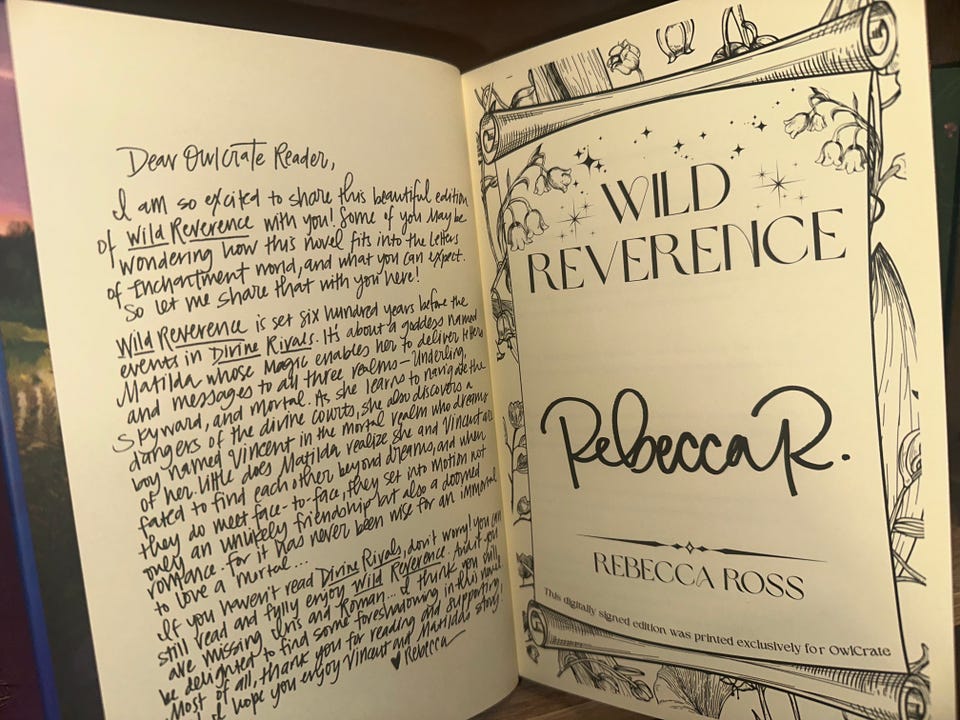 Dear OwlCrate Reader,
I am so excited to share this beautiful edition
of Wild Reverence with you! Some of you may be
wondering how this novel fits into the Letters
of Enchantment world, and what you can expect.
So let me share that with you here!
Wild Reverence is set six hundred years before the
events in Divine Rivals. It's about a goddess named
Matilda whose magic enables her to deliver letters
and messages to all three realms—Underling,
Skyward, and Mortal. As she learns to navigate the
dangers of the divine courts, she also discovers a
boy named Vincent in the mortal realm who dreams
of her. Little does Matilda realize she and Vincent are
fated to find each other beyond dreams, and when
they do meet face-to-face, they set into motion not
only an unlikely friendship but also a doomed
romance. For it has never been wise for an immortal
to love a mortal...
If you haven't read Divine Rivals, don't worry! You can
still read and fully enjoy Wild Reverence. And if you
are missing Iris and Roman... I think you will
be delighted to find some foreshadowing in this novel.
Most of all, thank you for reading and supporting
I hope you enjoy Vincent and Matilda's story!
♥ Rebecca
WILD
REVERENCE
Rebecca R.
REBECCA ROSS
This digitally signed edition was printed exclusively for OwlCrate